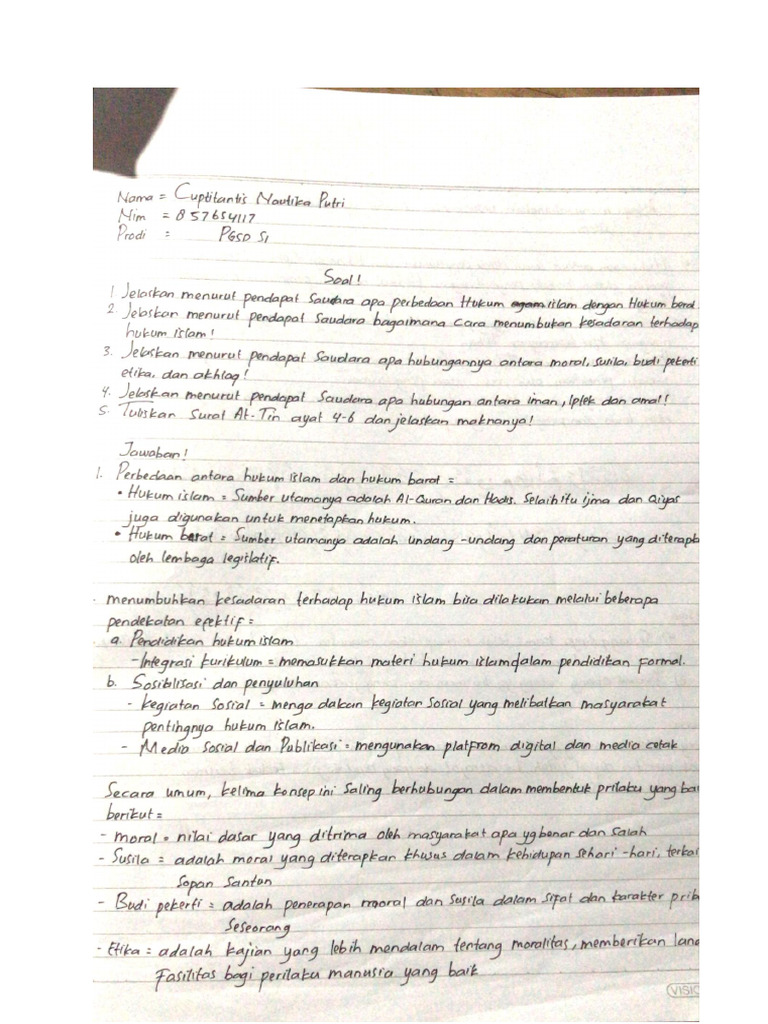 Nama = Cuptitantis Nautika Putri
Nim = 857654117
Prodi : PGSD S1
Soal!
1 Jelaskan menurut pendapat Saudara apa perbedaan Hukum agam islam dengan Hukum barat
2. Jelaskan menurut pendapat Saudara bagaimana Cara menumbukan kesadaran terhadap
hukum islam!
3. Jelaskan menurut pendapat Saudara apa hubungannya antara moral, susila, budi pekerti
etika, dan akhlaq!
4. Jelaskan menurut pendapat Saudara apa hubungan antara iman, Iptek dan amal!
5. Tuliskan Surat At-Tin ayat 4-6 dan jelaskan maknanya!
Jawaban!
1. Perbedaan antara hukum islam dan hukum barat =
• Hukum islam = Sumber utamanya adalah Al-Quran dan Hadis. Selain itu ijma dan Qiyas
juga digunakan untuk menetapkan hukum.
• Hukum barat = Sumber utamanya adalah undang-undang dan peraturan yang diterapk
oleh lembaga legislatif.
. menumbuhkan kesadaran terhadap hukum islam bisa dilakukan melalui beberapa
pendekatan efektif =
a. Pendidikan hukum islam
- Integrasi kurikulum = memasukkan materi hukum islam dalam pendidikan formal.
b. Sosialisasi dan penyuluhan
- kegiatan sosial = mengadakan kegiatan sosial yang melibatkan masyarakat
pentingnya hukum islam.
- Media Sosial dan Publikasi = mengunakan platfrom digital dan media cetak
Secara umum, kelima konsep ini saling berhubungan dalam membentuk prilaku yang bai
berikut =
- moral = nilai dasar yang ditrima oleh masyarakat apa yg benar dan salah
- Susila = adalah moral yang diterapkan khusus dalam kehidupan sehari-hari, terkai
Sopan Santun
- Budi pekerti = adalah penerapan moral dan susila dalam sifat dan karakter prib
Seseorang
- Etika = adalah kajian yang lebih mendalam tentang moralitas, memberikan land
Fasilitas bagi perilaku manusia yang baik
VISIO